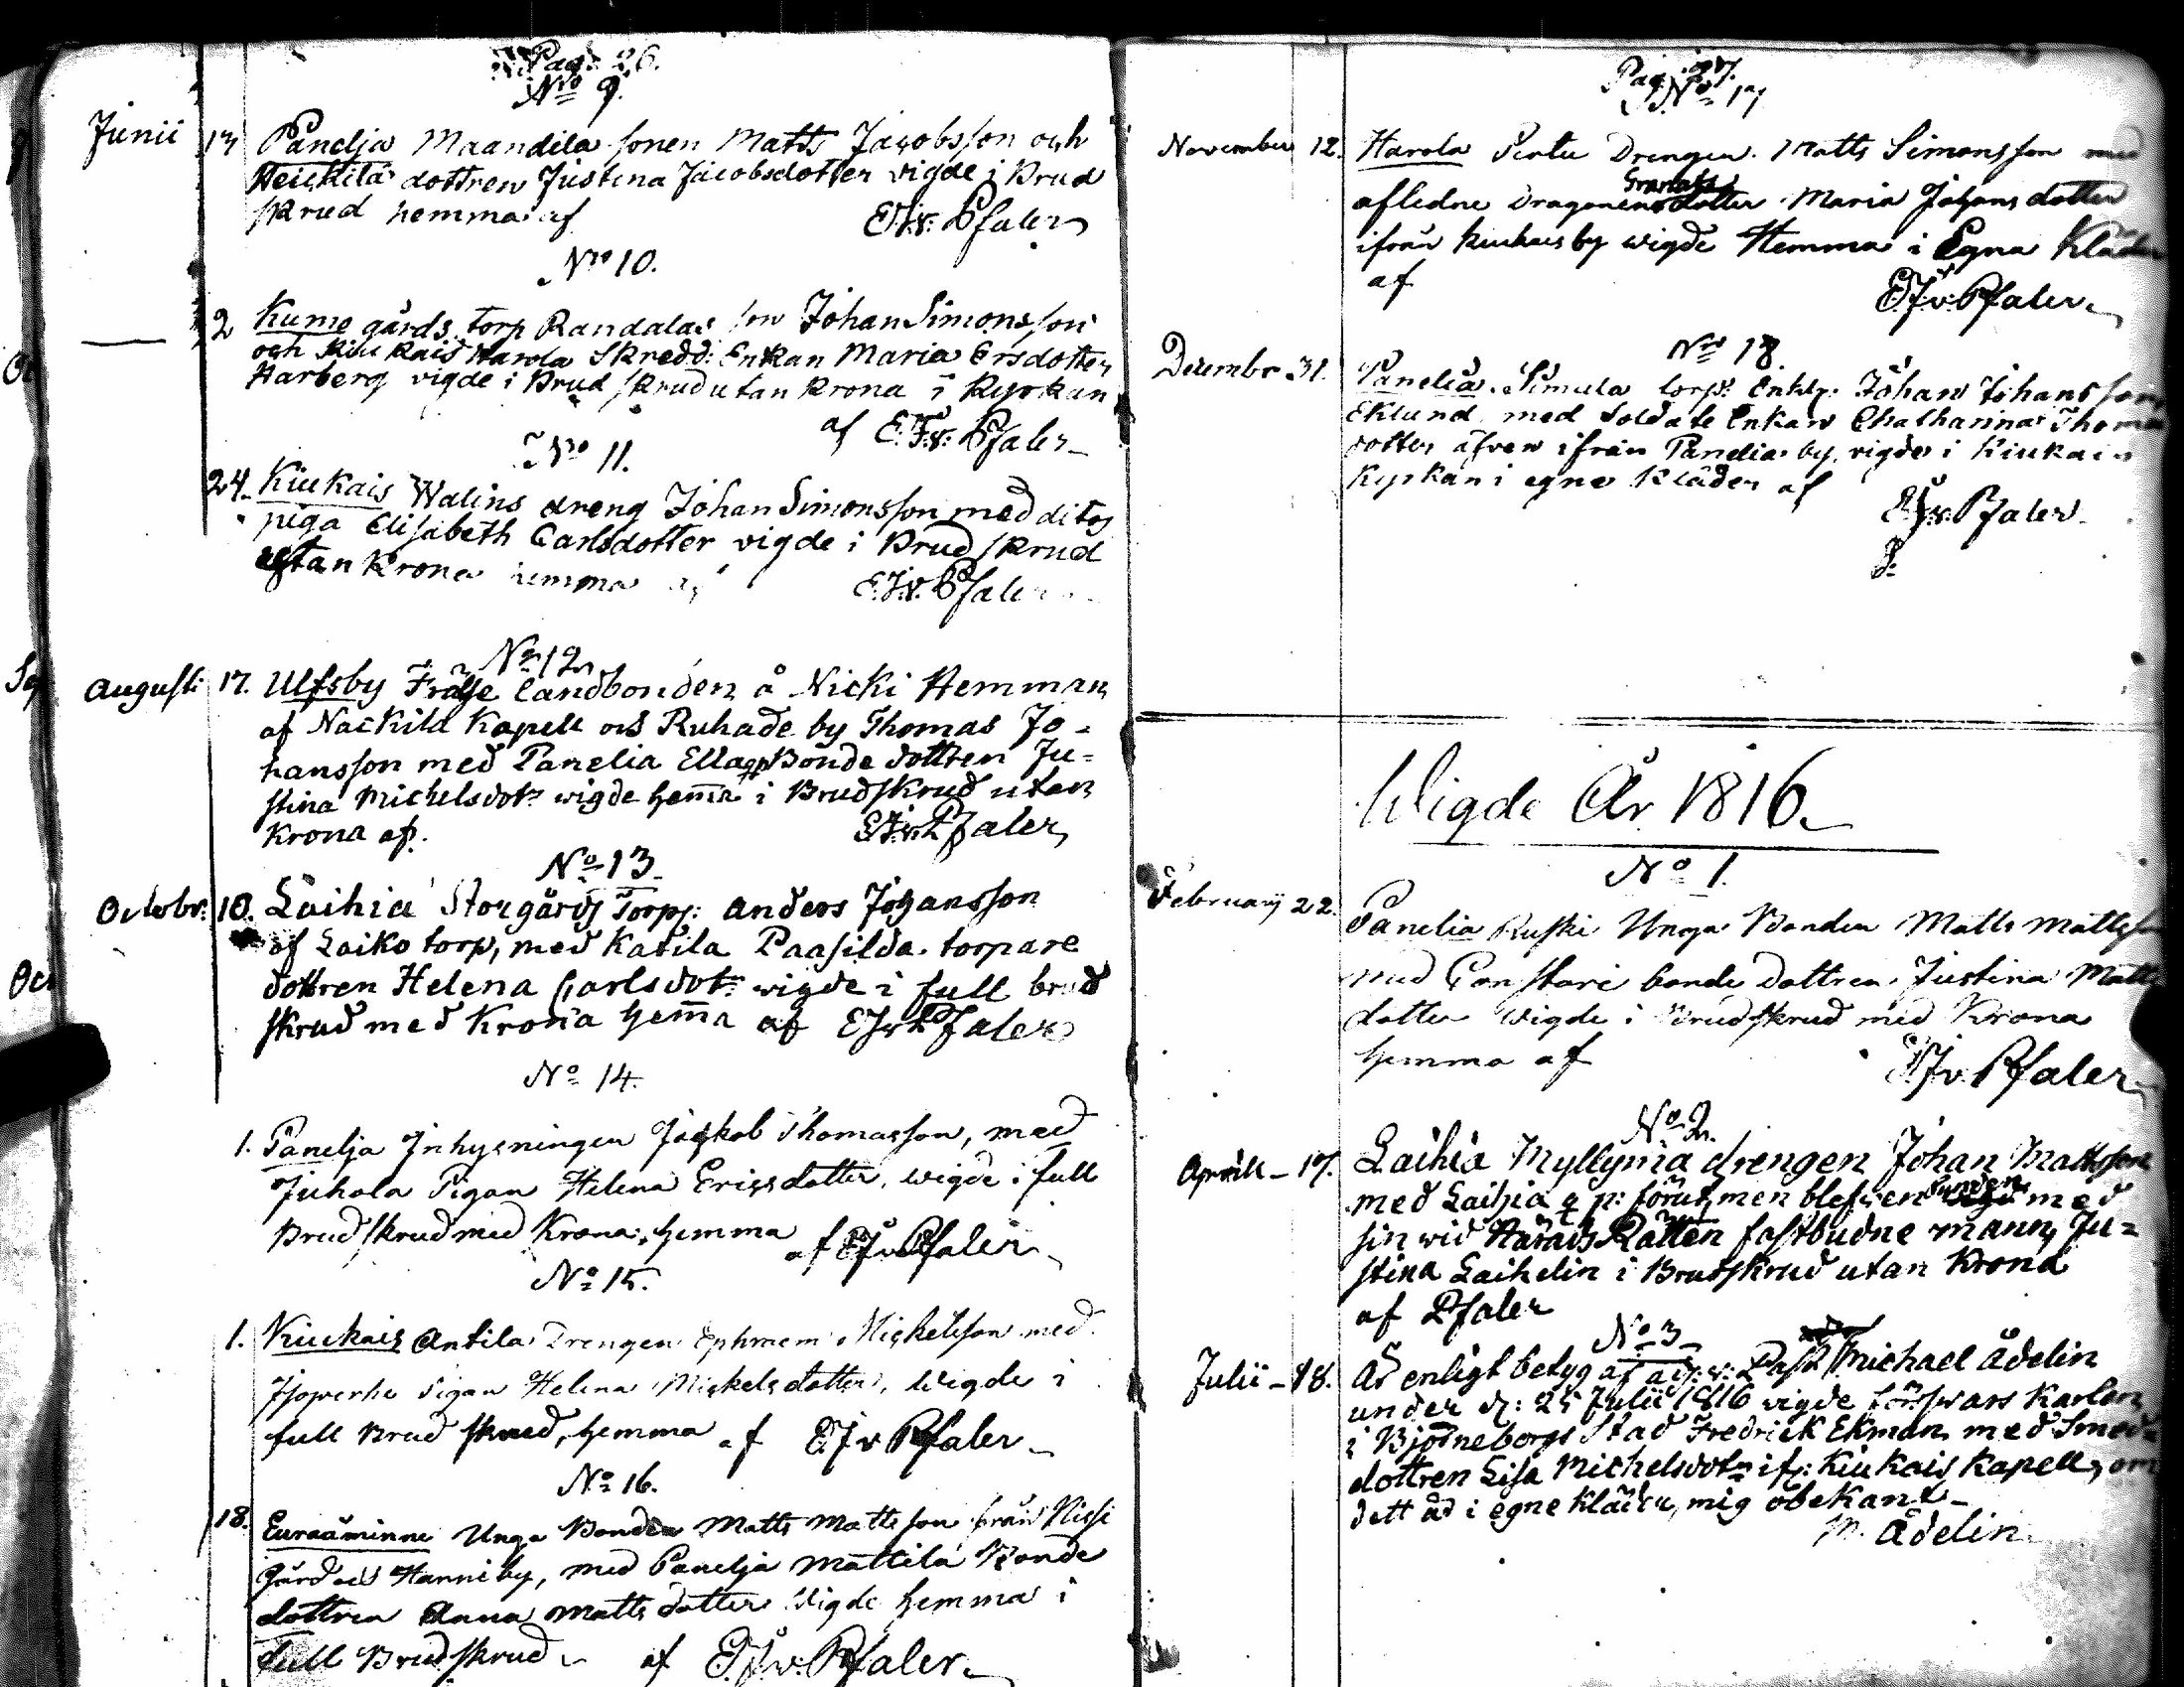 Pag: 26.
No 9.
Junii 13 Panelja Maandila sonen Matts Jacobsson och
Heickilä dottren Justina Jacobsdotter vigde i Brud
skrud hemma af E.J.v. Pfaler
No 10.
2 Kumo gårds torp Randalas son Johan Simonsson
och Kiukais Harola Skredd: Enkan Maria Ersdotter
Harberg vigde i Brud skrud utan Krona i Kyrkan
af E.J.v. Pfaler
No 11.
24. Kiukais Walins dreng Johan Simonsson med ditos
piga Elisabeth Carlsdotter vigde i Brud skrud
utan Krona hemma af E.J.v. Pfaler
No 12
Augusti 17. Ulfsby Frälse Landbonden å Nicki Hemman
af Nackila Kapell och Ruhade by Thomas Jo-
hansson med Panelia Bonde dottren Ju-
stina Michelsdotr wigde hema i Brudskrud utan
Krona af. E.J.v. Pfaler
No 13
Octobr: 10. Laihia Storgårds Torp: Anders Johansson
af Laiko torp, med Katila Paasilda torpare
dottren Helena Carlsdotr wigde i full brud
skrud med Krona hema af E.J.v. Pfaler
No 14.
1. Panelja Inhysningen Jackob Thomasson, med
Juhola Pigan Helena Ericsdotter, wigde i full
Brudskrud med Krona, hemma af E.J.v. Pfaler
No 15.
1. Kiukais Antila Drengen Ephraem Mickelsson med
Pigan Helena Mickelsdotter, wigde i
full Brud skrud, hemma af E.J.v. Pfaler
No 16.
18. Euraåminne Unga Bonden Matts Mattsson från
gård och Hanni by, med Panelja Mattila Bonde
dottren Anna Mattsdotter Wigde hemma i
full Brudskrud af E.J.v. Pfaler
Pag: 27.
No 17
November 12. Harola Drengen Matts Simonsson med
Granats
afledne Dragonens dotter Maria Johansdotter
ifrån Kiukais by wigde Hemma i Egna Kläder
af E.J.v. Pfaler
No 18.
Decembr 31. Panelia Simula torps Enkl: Johan Johansson
Eklund med Soldate Enkan Chatharina Thoma
dotter äfven ifrån Panelia by vigde i Kiukais
Kyrkan i egne Kläder af E.J.v. Pfaler
Wigde År 1816.
No 1.
Februarij 22. Panelia Ruski Unga Bonden Matts Mattsson
med bonde dottren Justina Matts
dotter Wigde i Brudskrud med Krona
hemma af E.J.v. Pfaler
No 2.
Aprill 17. Laihia Myllymä drengen Johan Mattsson
med Laihia q p: förut, men blefven med
sin wid Härads Rätten fastbudne mann, Ju-
stina Laihelin i Brudskrud utan Krona
af Pfaler
No 3
Julii 18. Är enligt betyg af Michael Ådelin
under d: 25 Julii 1816 vigde försvars Karlen
i Björneborgs Stad Fredrick Ekman med Smeds
dottren Lisa Michelsdotr if: Kiukais Kapell, om
dett är i egne kläder, mig obekant
M. Ådelin